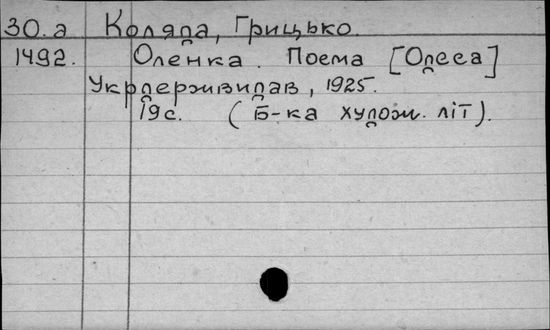 30.а Коляда, Грицько.
1492. Оленка. Поема [Одеса]
Укрдержвидав, 1925.
19с. (Б-ка худож. літ).